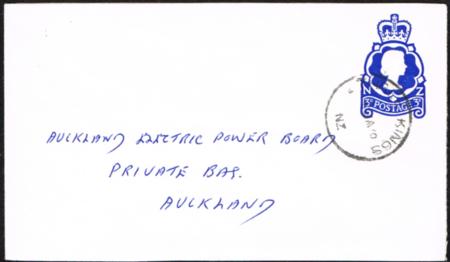 N Z
3c POSTAGE 3c
KINGS
NZ
AUCKLAND ELECTRIC POWER BOARD
PRIVATE BAG.
AUCKLAND